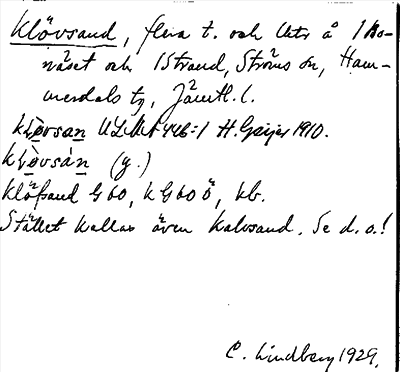 Klövsand, flera t. och åkrar å 1 Bo-
näset och 1 Strand, Ströms sn, Ham-
merdals tg, Jämtl. l.
kḷøvsan ULMA 446:1 H. Geijer 1910.
kḷøvsàn (y.)
Klöfsand G 60, k G 60 ö, kb.
Stället kallas även Kalvsand. Se d. o.!
C. Lindberg 1929.